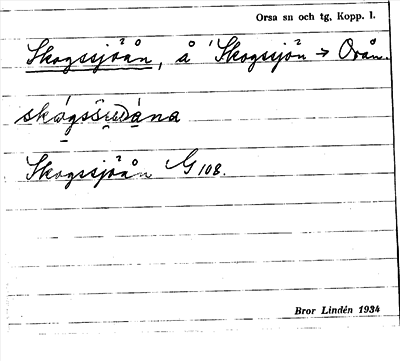 Orsa sn och tg, Kopp. l.
Skogssjöån, å Skogssjön → Oreån.
Skogssjöån G 108.
Bror Lindén 1934